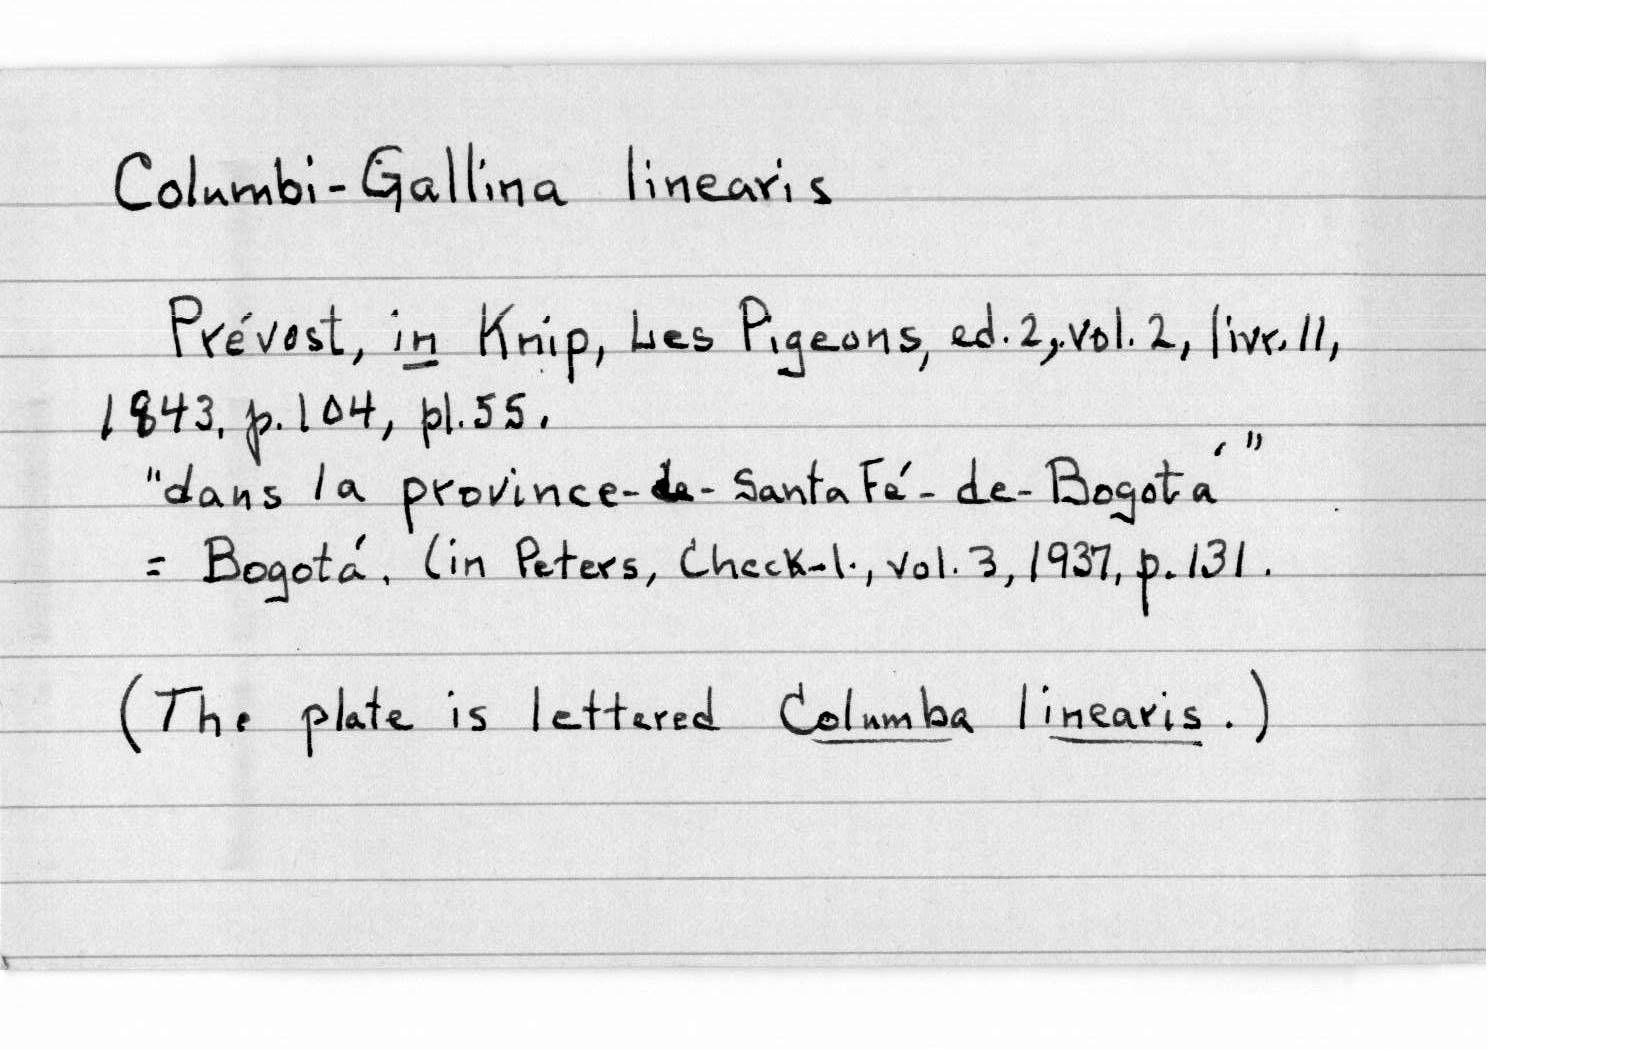 Columbi-Gallina linearis
Prévost, in Knip, Les Pigeons, ed. 2, vol. 2, livr. 11,
1843, p. 104, pl. 55.
"dans la province-de-Santa Fé-de-Bogotá"
= Bogotá. (in Peters, Check-l., vol. 3, 1937, p. 131.
(The plate is lettered Columba linearis.)